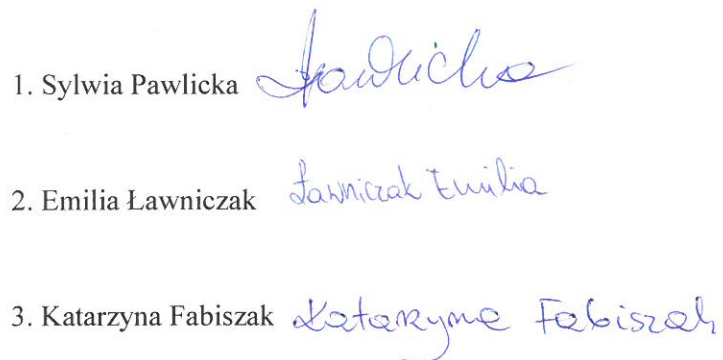 1. Sylwia Pawlicka Pawlicka
2. Emilia Ławniczak Ławniczak Emilia
3. Katarzyna Fabiszak Katarzyna Fabiszak